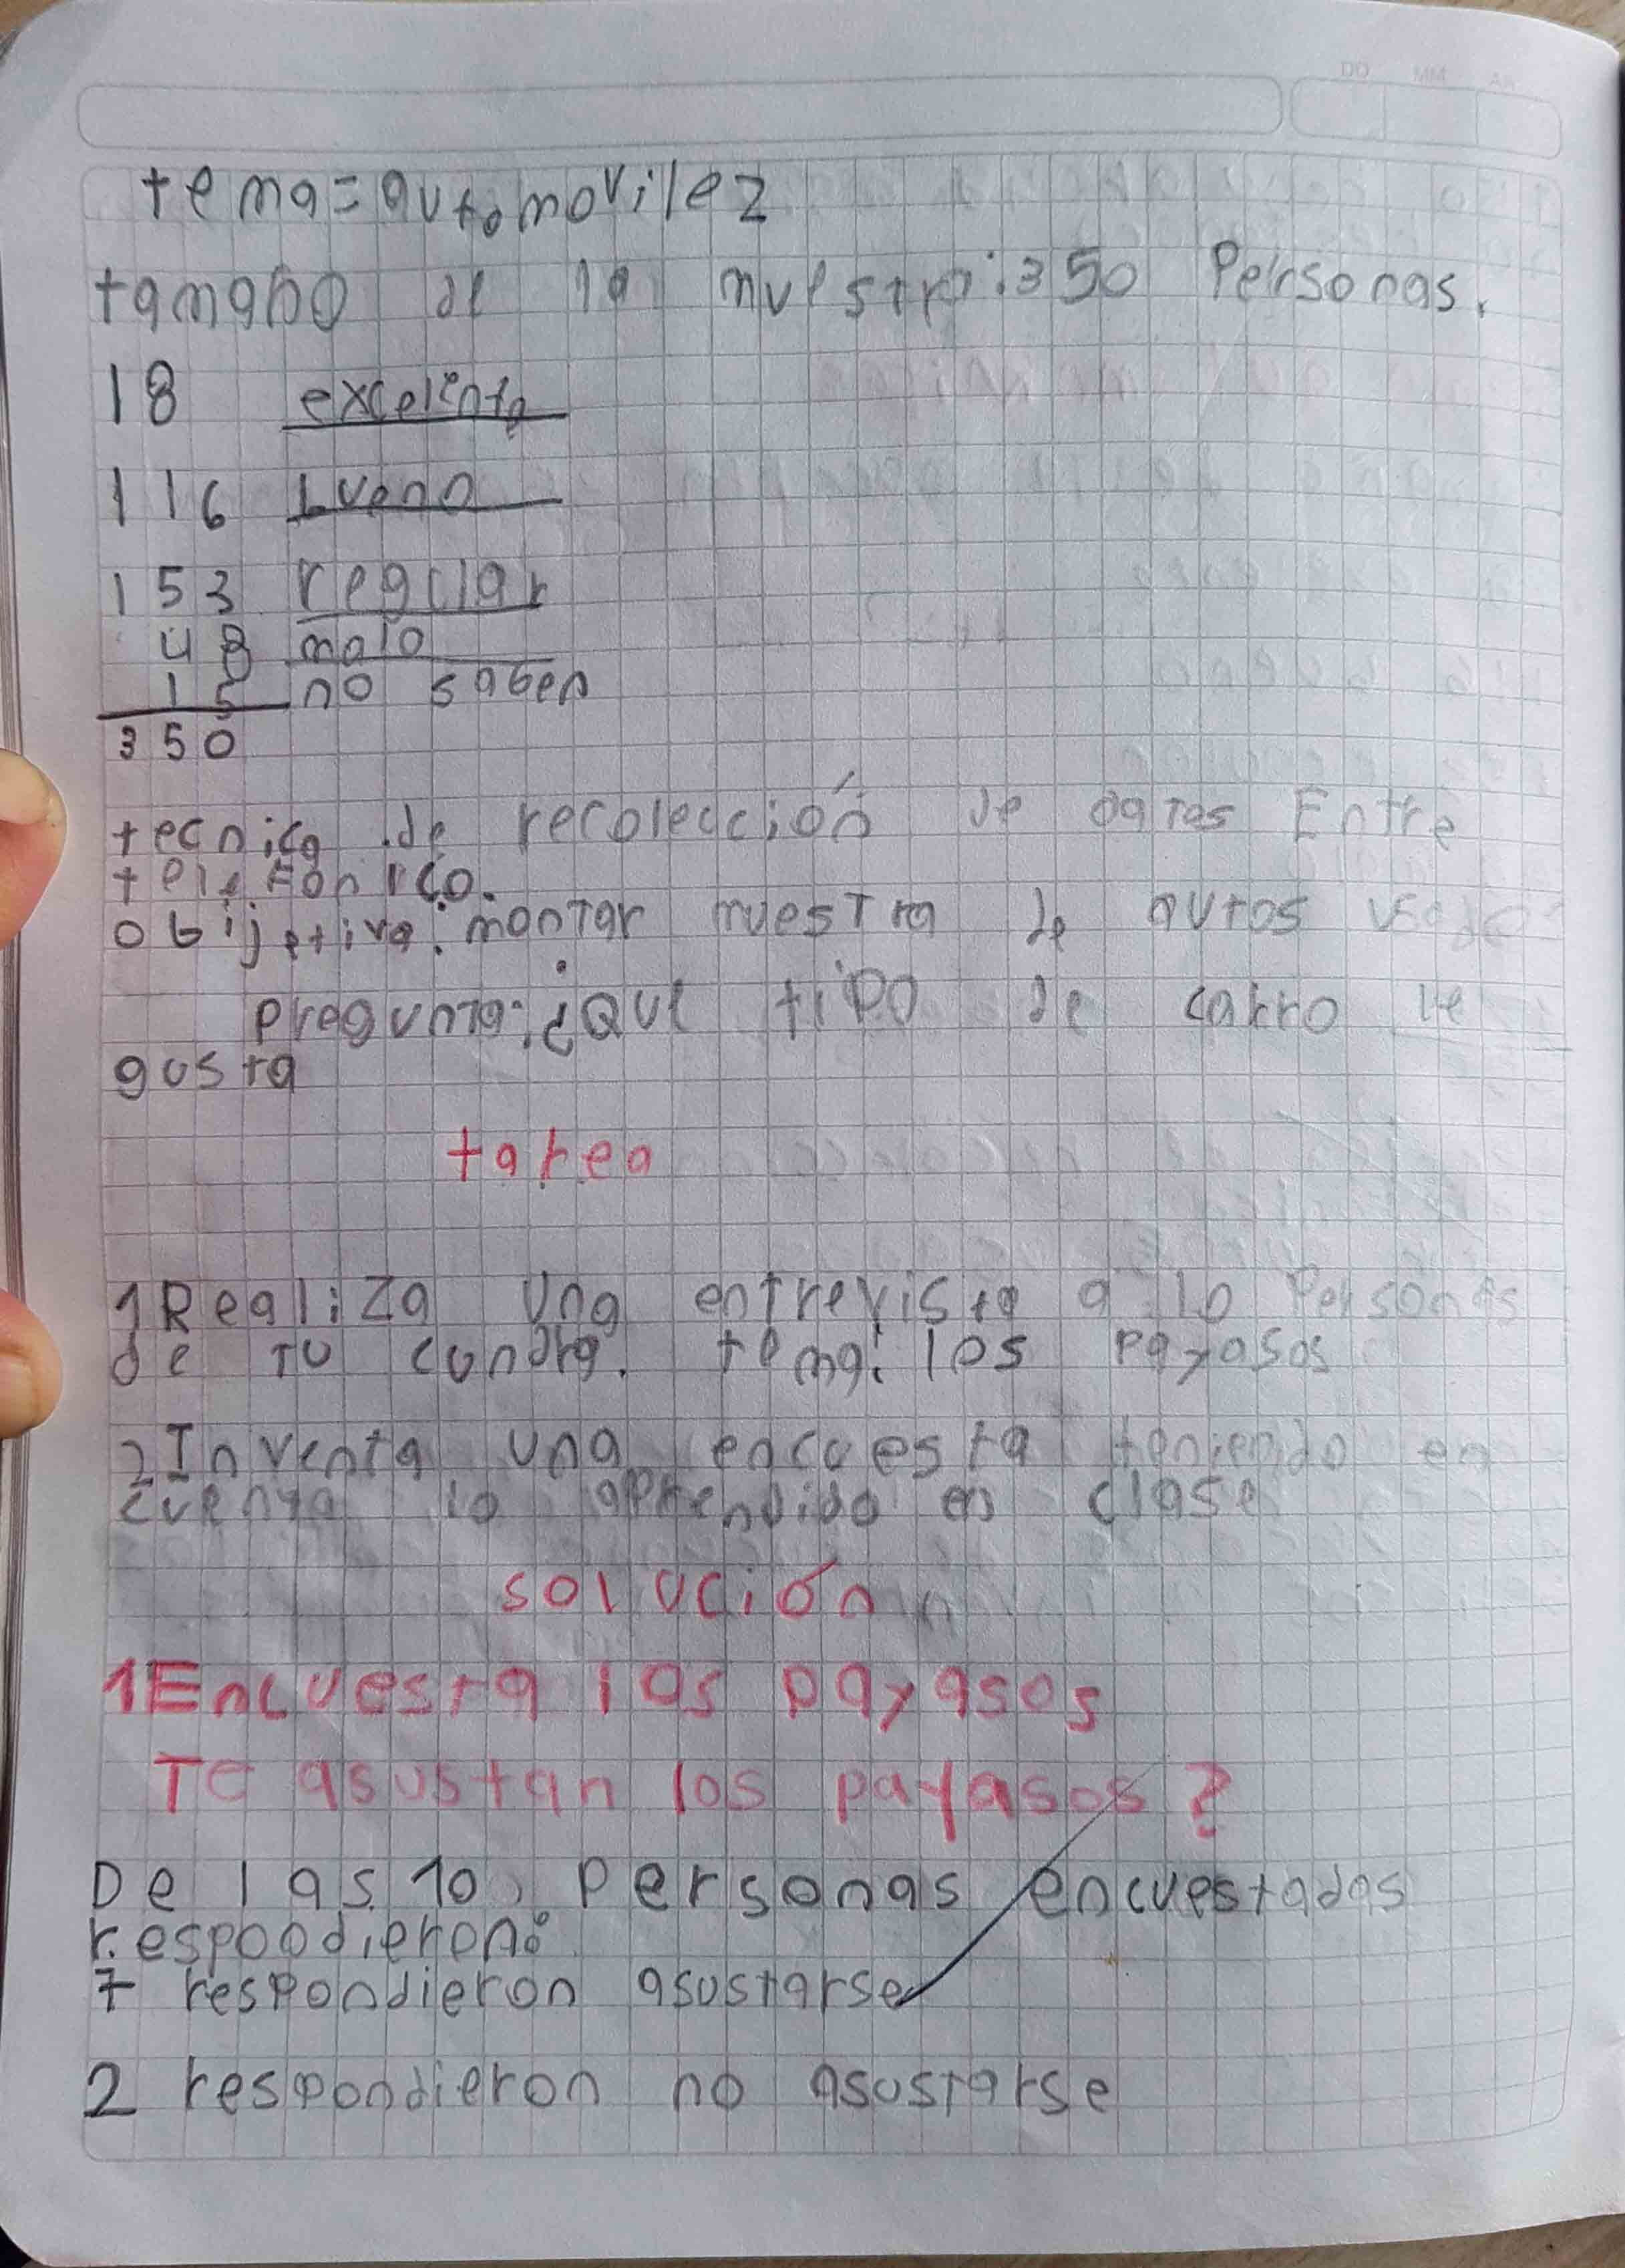 DD MM AA
tema=automovilez
tamaño de la muestra:350 Personas.
18 excelente
116 bueno
153 regular
48 malo
15 no saben
350
tecnica de recolección de datos Entre
telefonico.
obijetiva: montar muestra de autos
pregunta: ¿Que tipo de carro le
gusta
tarea
1Realiza una entrevista a 10 Personas
de tu cundra. tema: los payasos
2Inventa una encuesta teniendo en
cuenta lo aprendido en clase
solución
1Encuesta los payasos
Te asustan los payasos?
De las 10 personas encuestadas
respondieron:
7 respondieron asustarse
2 respondieron no asustarse